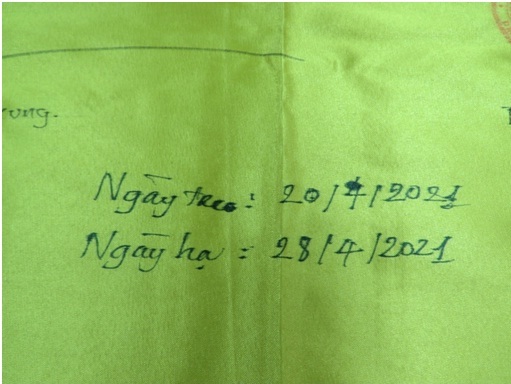 Ngày treo: 20/4/2021
Ngày hạ : 28/4/2021